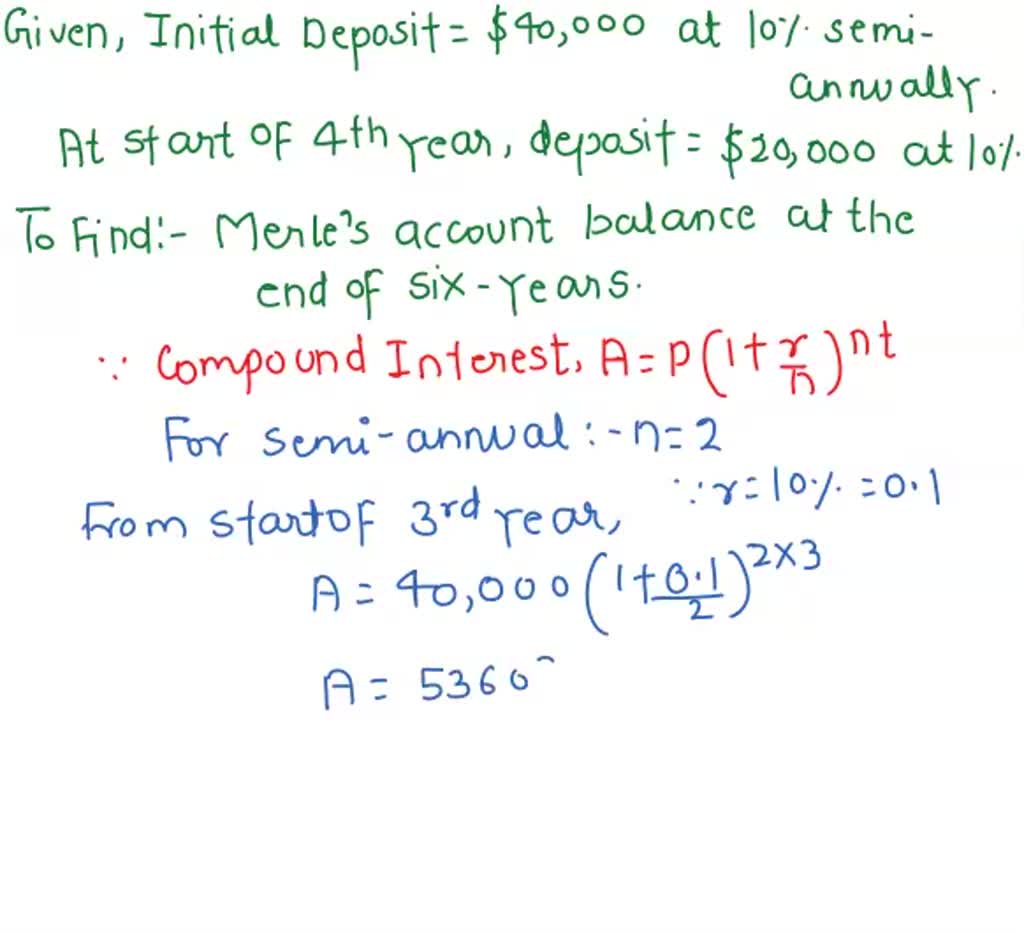 Given, Initial Deposit = $40,000 at 10% semi-
annually.
At start of 4th year, deposit = $20,000 at 10%.
To Find:- Merle's account balance at the
end of six-years.
∵ Compound Interest, A = P(1+r/n)^nt
For semi-annual :- n=2
∵ r=10% = 0.1
From start of 3rd year,
A = 40,000 (1+0.1/2)^2×3
A = 5360